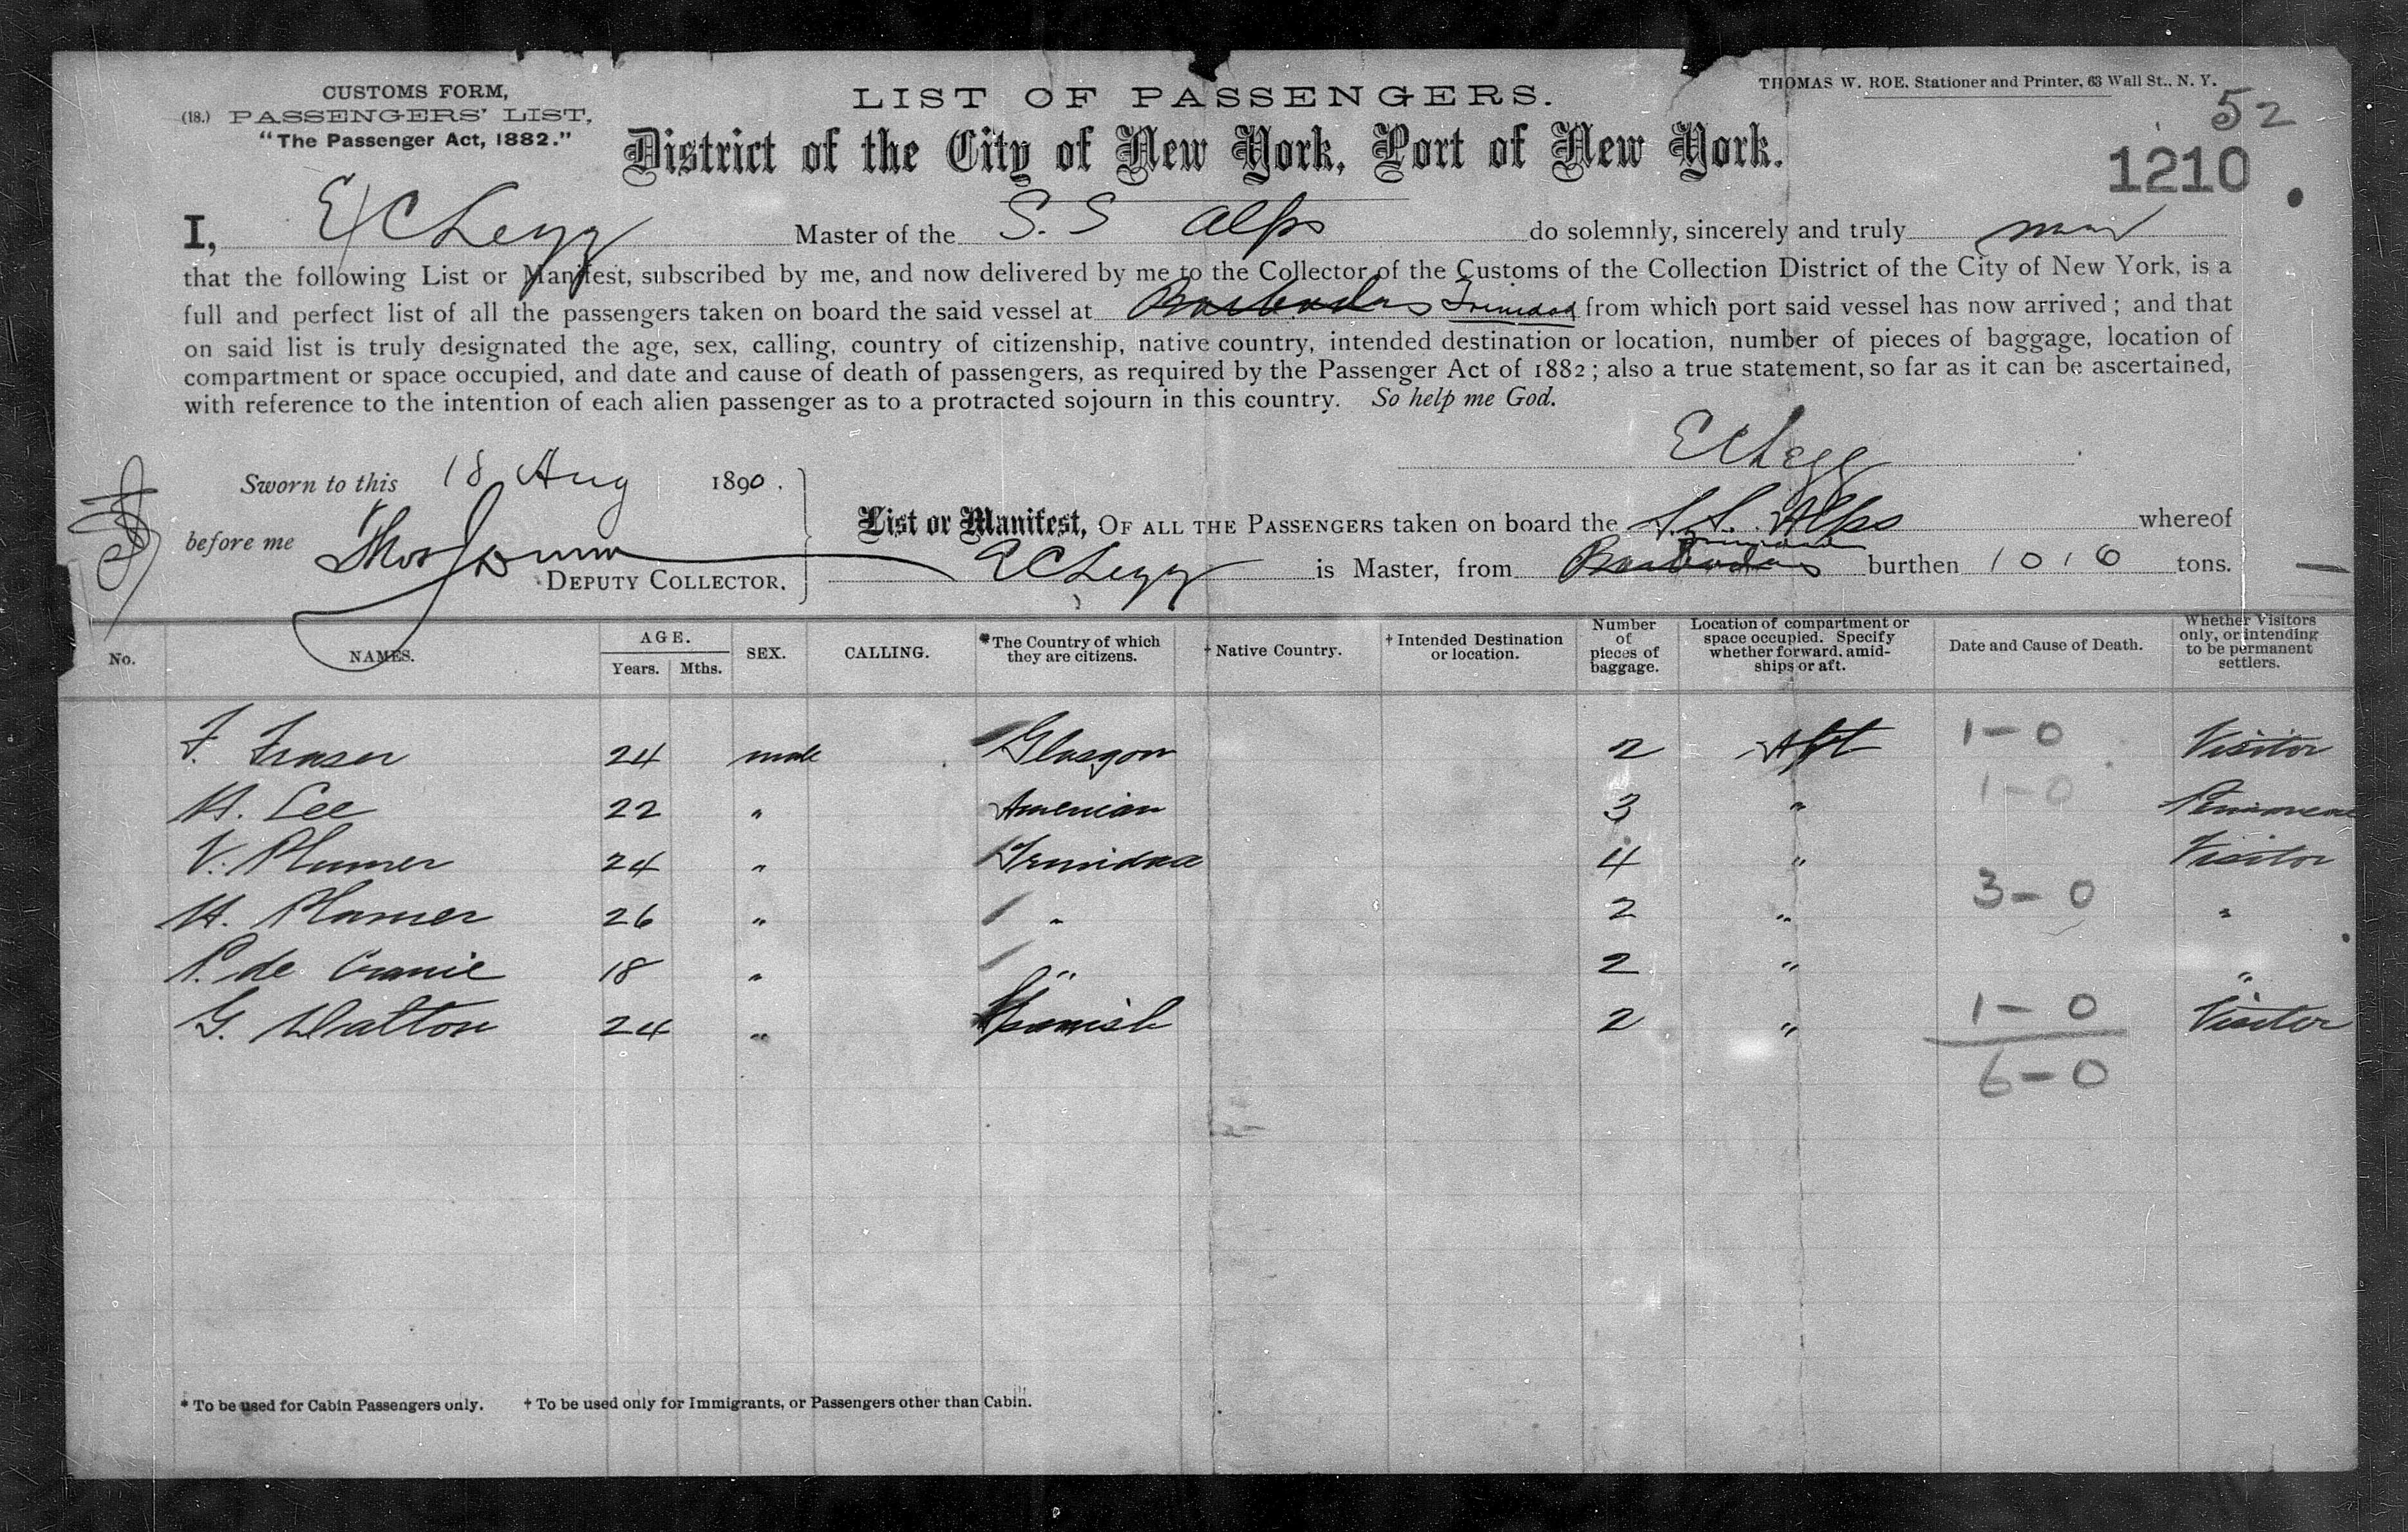 CUSTOMS FORM,
(18.) PASSENGERS' LIST,
"The Passenger Act, 1882."
LIST OF PASSENGERS.
THOMAS W. ROE, Stationer and Printer, 63 Wall St., N. Y.
52
District of the City of New York, Port of New York.
1210
I, E C Legg Master of the S. S Alps do solemnly, sincerely and truly
that the following List or Manifest, subscribed by me, and now delivered by me to the Collector of the Customs of the Collection District of the City of New York, is a
full and perfect list of all the passengers taken on board the said vessel at Barbados Trinidad from which port said vessel has now arrived; and that
on said list is truly designated the age, sex, calling, country of citizenship, native country, intended destination or location, number of pieces of baggage, location of
compartment or space occupied, and date and cause of death of passengers, as required by the Passenger Act of 1882; also a true statement, so far as it can be ascertained,
with reference to the intention of each alien passenger as to a protracted sojourn in this country. So help me God.
E C Legg
Sworn to this 18 Aug 1890.
before me Thos
DEPUTY COLLECTOR.
List or Manifest, OF ALL THE PASSENGERS taken on board the S. S. Alps whereof
E C Legg is Master, from Trinidad Barbados burthen 1016 tons.
No. NAMES. AGE. Years. Mths. SEX. CALLING. *The Country of which they are citizens. †Native Country. †Intended Destination or location. Number of pieces of baggage. Location of compartment or space occupied. Specify whether forward, amidships or aft. Date and Cause of Death. Whether Visitors only, or intending to be permanent settlers.
F. Fraser 24 male Glasgow 2 Aft 1-0 Visitor
H. Lee 22 " American 3 " 1-0
V. Plumer 24 " Trinidad 4 " Visitor
H. Plumer 26 " " 2 " 3-0 "
P. de 18 " " 2 " "
G. Walton 24 " Spanish 2 " 1-0 Visitor
6-0
* To be used for Cabin Passengers only. † To be used only for Immigrants, or Passengers other than Cabin.